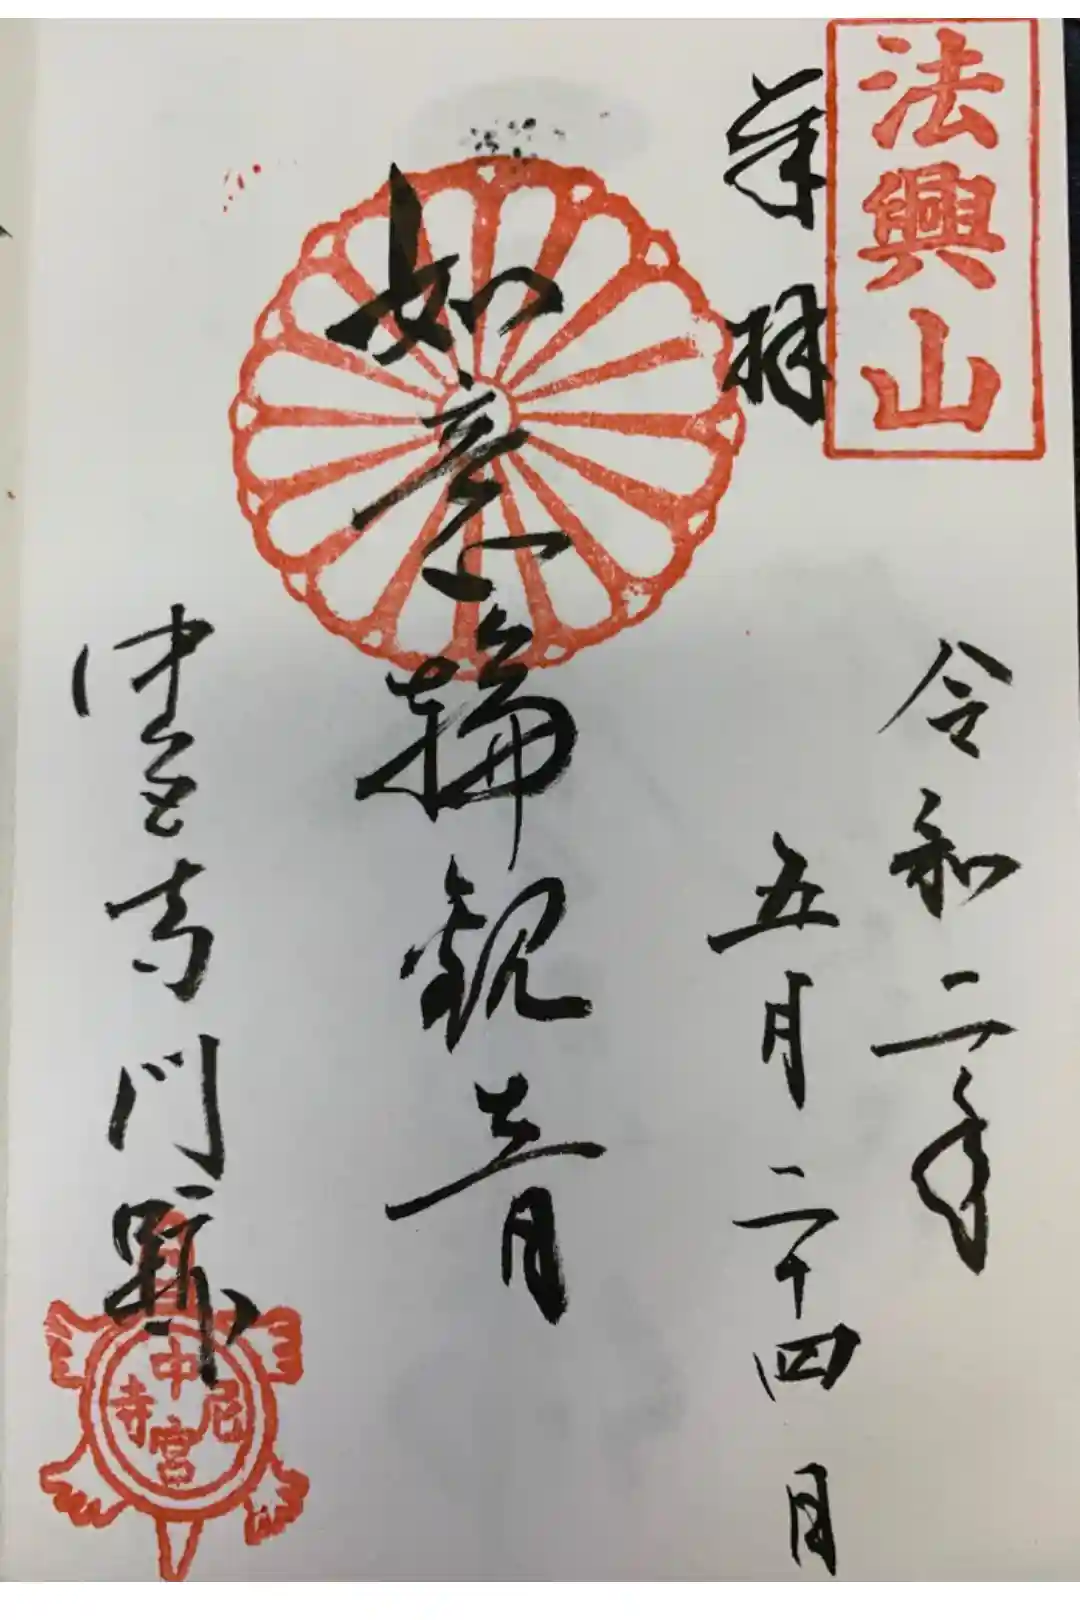 法興山
奉拝
令和二年
五月二十四日
如意輪観音
中宮寺門跡
中宮尼寺